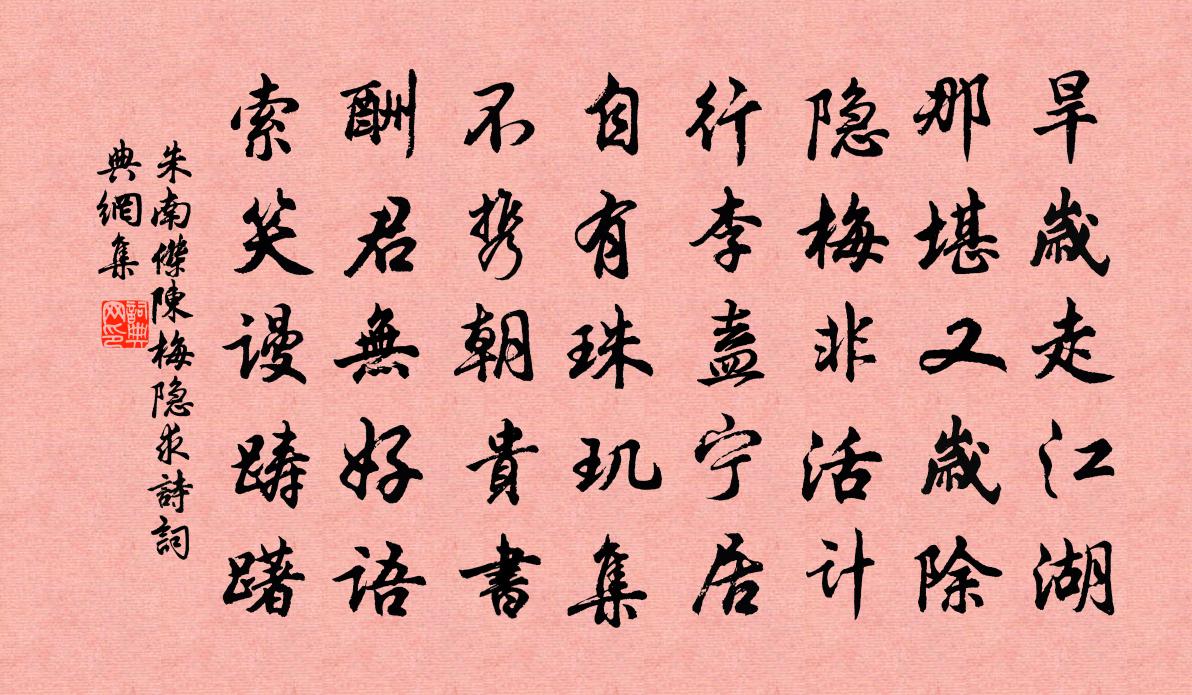 旱歳走江湖
那堪又歳除
隐梅非活计
行李盍宁居
自有珠玑集
不携朝貴書
酬君無好語
索笑谩踌躇
朱南傑陳梅隐求詩詞
典網集
詞典
网印